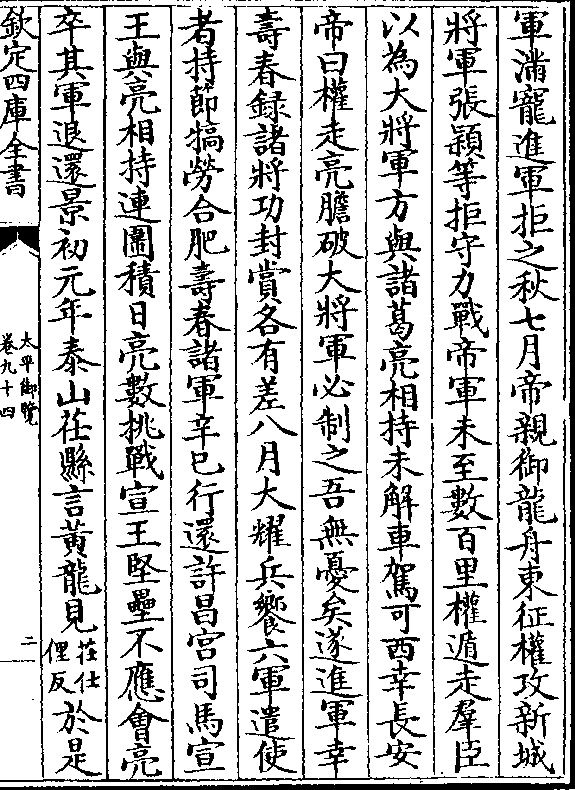 軍滿寵進軍拒之秋七月帝親御龍舟東征權攻新城
將軍張穎等拒守力戰帝軍未至數百里權遁走羣臣
以為大將軍方與諸葛亮相持未解車駕可西幸長安
帝曰權走亮膽破大將軍必制之吾無憂矣遂進軍幸
壽春録諸將功封賞各有差八月大耀兵饗六軍遣使
者持節犒勞合肥壽春諸軍辛巳行還許昌宫司馬宣
王與亮相持連圍積日亮數挑戰宣王堅壘不應會亮
卒其軍退還景初元年泰山茌縣言黄龍見茌仕俚反於是
欽定四庫全書
太平御覽
卷九十四
二